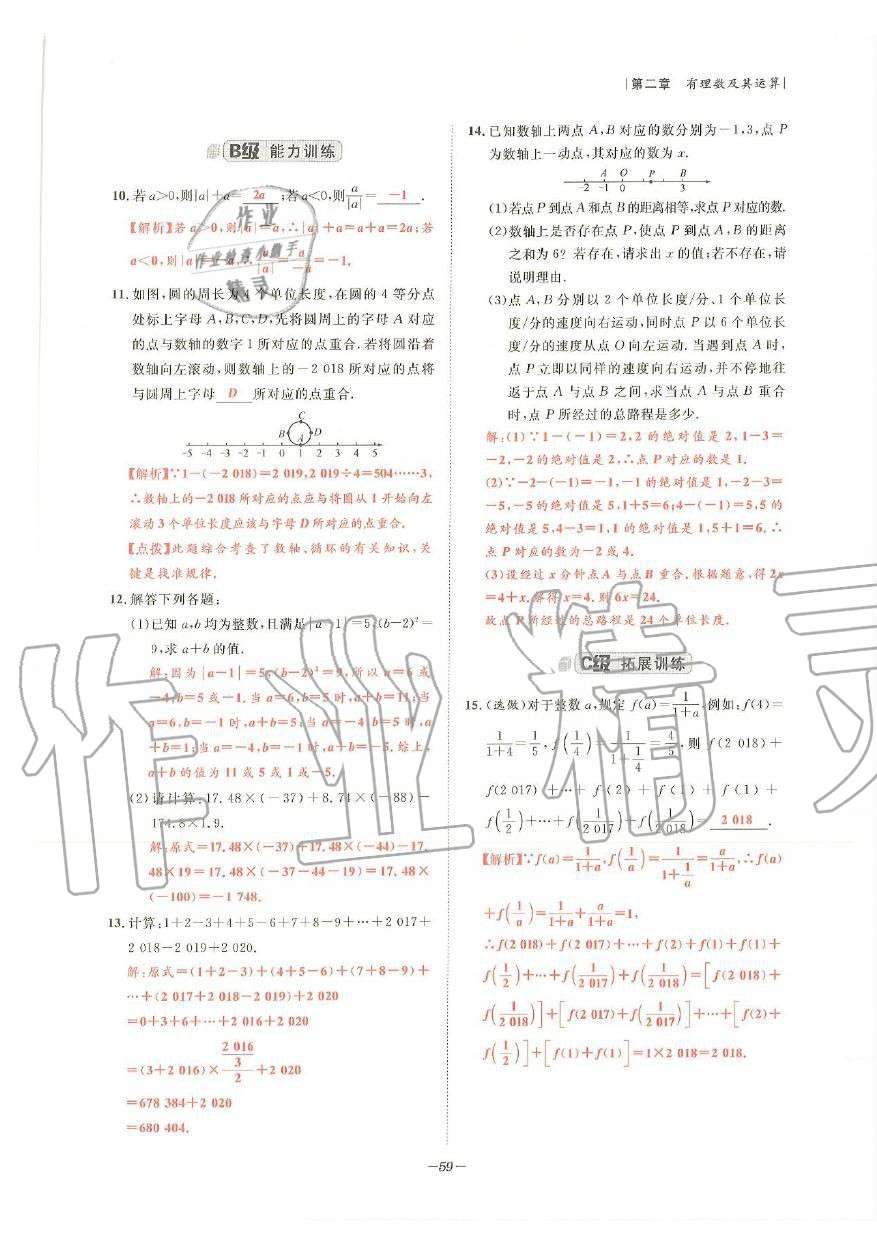 第二章 有理数及其运算
B级 能力训练
10.若a>0,则|a|+a= 2a ;若a<0,则a/|a|= -1 .
【解析】若a>0,则|a|=a,∴|a|+a=a+a=2a;若
a<0,则|a|=-a,∴a/|a|=a/-a=-1.
11.如图,圆的周长为4个单位长度,在圆的4等分点
处标上字母A,B,C,D,先将圆周上的字母A对应
的点与数轴的数字1所对应的点重合.若将圆沿着
数轴向左滚动,则数轴上的-2 018所对应的点将
与圆周上字母 D 所对应的点重合.
C
B D
A
-5 -4 -3 -2 -1 0 1 2 3 4 5
【解析】∵1-(-2 018)=2 019,2 019÷4=504……3,
∴数轴上的-2 018所对应的点应与将圆从1开始向左
滚动3个单位长度应该与字母D所对应的点重合.
【点拨】此题综合考查了数轴、循环的有关知识,关
键是找准规律.
12.解答下列各题:
(1)已知a,b均为整数,且满足|a-1|=5,(b-2)²=
9,求a+b的值.
解:因为|a-1|=5,(b-2)²=9,所以a=6或
-4,b=5或-1.当a=6,b=5时,a+b=11;当
a=6,b=-1时,a+b=5;当a=-4,b=5时,a
+b=1;当a=-4,b=-1时,a+b=-5.综上,
a+b的值为11或5或1或-5.
(2)请计算:17.48×(-37)+8.74×(-88)-
174.8×1.9.
解:原式=17.48×(-37)+17.48×(-44)-17.
48×19=17.48×(-37-44-19)=17.48×
(-100)=-1 748.
13.计算:1+2-3+4+5-6+7+8-9+…+2 017+
2 018-2 019+2 020.
解:原式=(1+2-3)+(4+5-6)+(7+8-9)+
…+(2 017+2 018-2 019)+2 020
=0+3+6+…+2 016+2 020
=(3+2 016)×(2 016/3)/2+2 020
=678 384+2 020
=680 404.
14.已知数轴上两点A,B对应的数分别为-1,3,点P
为数轴上一动点,其对应的数为x.
A O P B
-2 -1 0 3
(1)若点P到点A和点B的距离相等,求点P对应的数.
(2)数轴上是否存在点P,使点P到点A,B的距离
之和为6?若存在,请求出x的值;若不存在,请
说明理由.
(3)点A,B分别以2个单位长度/分、1个单位长
度/分的速度向右运动,同时点P以6个单位长
度/分的速度从点O向左运动.当遇到点A时,
点P立即以同样的速度向右运动,并不停地往
返于点A与点B之间,求当点A与点B重合
时,点P所经过的总路程是多少.
解:(1)∵1-(-1)=2,2的绝对值是2,1-3=
-2,-2的绝对值是2,∴点P对应的数是1.
(2)∵-2-(-1)=-1,-1的绝对值是1,-2-3=
-5,-5的绝对值是5,1+5=6;4-(-1)=5,5的
绝对值是5,4-3=1,1的绝对值是1,5+1=6.∴
点P对应的数为-2或4.
(3)设经过x分钟点A与点B重合.根据题意,得2x
=4+x.解得x=4.则6x=24.
故点P所经过的总路程是24个单位长度.
C级 拓展训练
15.(选做)对于整数a,规定f(a)=1/(1+a),例如:f(4)=
1/(1+4)=1/5,f(1/4)=1/(1+1/4)=4/5,则f(2 018)+
f(2 017)+…+f(2)+f(1)+f(1)+
f(1/2)+…+f(1/2 017)+f(1/2 018)= 2 018 .
【解析】∵f(a)=1/(1+a),f(1/a)=1/(1+1/a)=a/(1+a),∴f(a)
+f(1/a)=1/(1+a)+a/(1+a)=1,
∴f(2 018)+f(2 017)+…+f(2)+f(1)+f(1)+
f(1/2)+…+f(1/2 017)+f(1/2 018)=[f(2 018)+
f(1/2 018)]+[f(2 017)+f(1/2 017)]+…+[f(2)+
f(1/2)]+[f(1)+f(1)]=1×2 018=2 018.
-59-
作业精灵